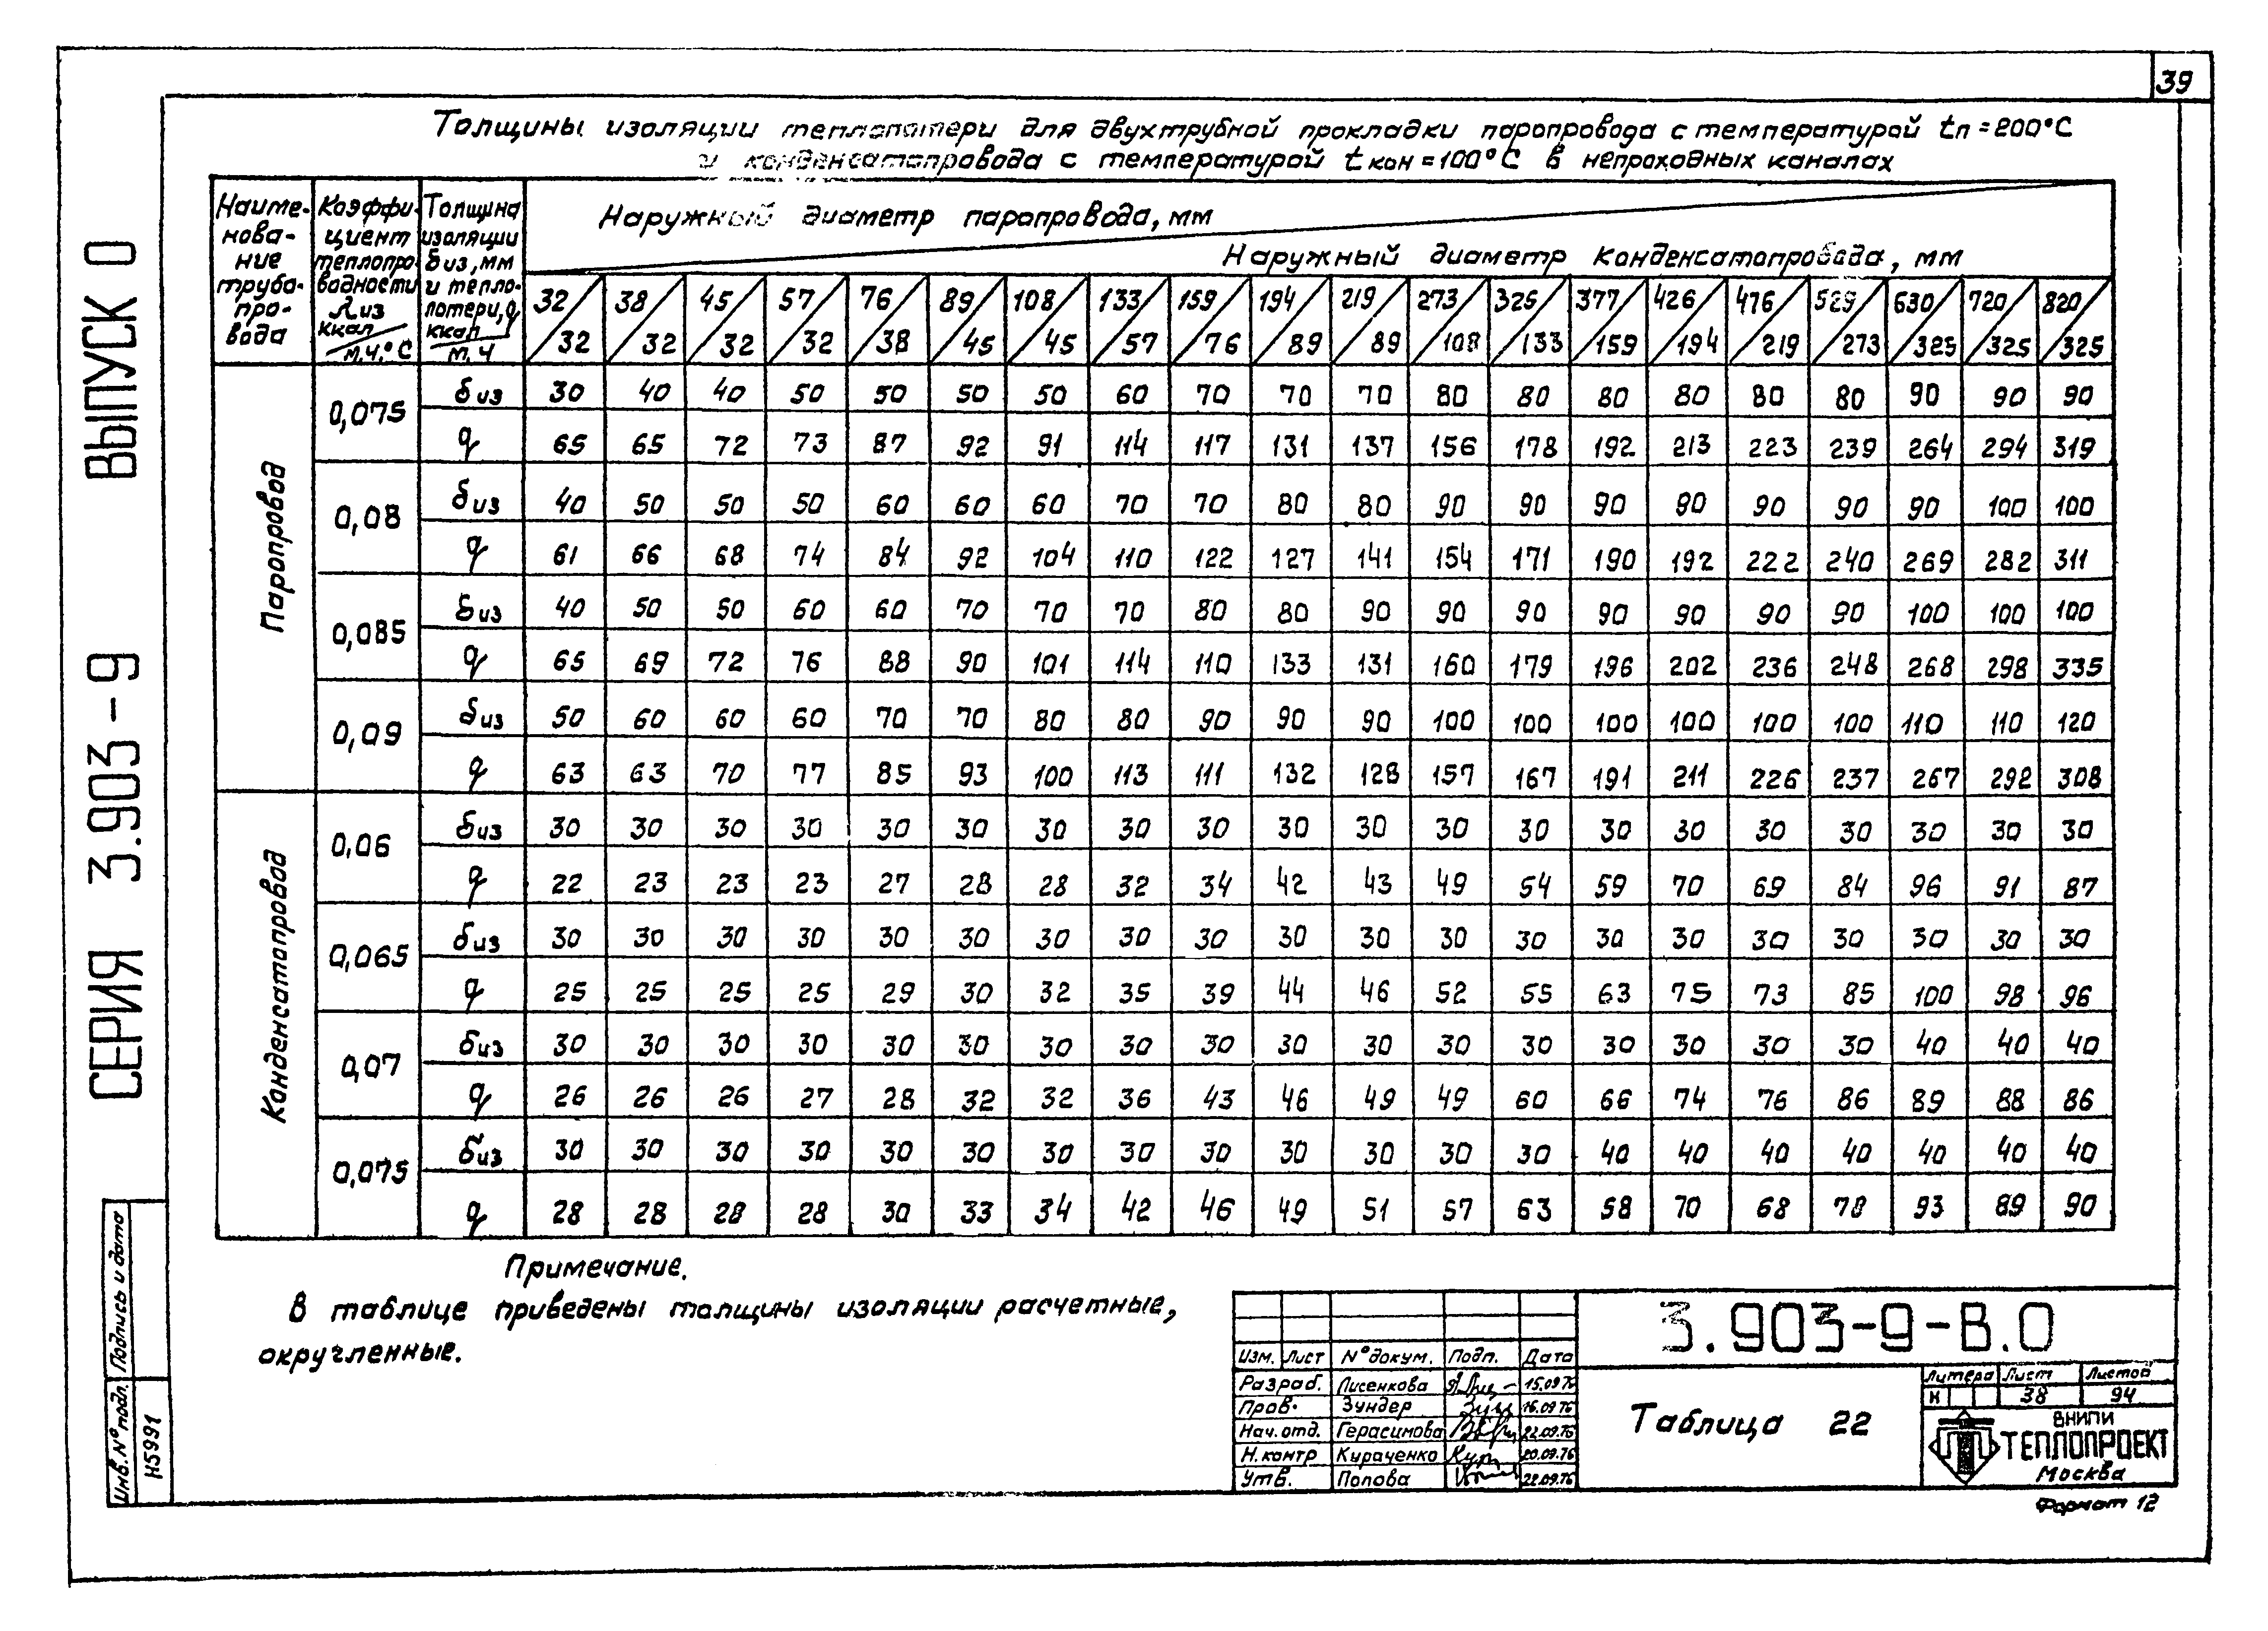 39
Толщины изоляции теплопотери для двухтрубной прокладки паропровода с температурой tп = 200°С
и конденсатопровода с температурой tкон = 100°С в непроходных каналах
Наиме-нова-ние трубо-про-вода
Коэффи-циент теплопро-водности λиз ккал/м.ч.°С
Толщина изоляции δиз, мм и тепло-потери, q ккал/м.ч
Наружный диаметр паропровода, мм
Наружный диаметр конденсатопровода, мм
32/32 38/32 45/32 57/32 76/38 89/45 108/45 133/57 159/76 194/89 219/89 273/108 325/133 377/159 426/194 476/219 529/273 630/325 720/325 820/325
Паропровод
0,075
δиз 30 40 40 50 50 50 50 60 70 70 70 80 80 80 80 80 80 90 90 90
q 65 65 72 73 87 92 91 114 117 131 137 156 178 192 213 223 239 264 294 319
0,08
δиз 40 50 50 50 60 60 60 70 70 80 80 90 90 90 90 90 90 90 100 100
q 61 66 68 74 84 92 104 110 122 127 141 154 171 190 192 222 240 269 282 311
0,085
δиз 40 50 50 60 60 70 70 70 80 80 90 90 90 90 90 90 90 100 100 100
q 65 69 72 76 88 90 101 114 110 133 131 160 179 196 202 236 248 268 298 335
0,09
δиз 50 60 60 60 70 70 80 80 90 90 90 100 100 100 100 100 100 110 110 120
q 63 63 70 77 85 93 100 113 111 132 128 157 167 191 211 226 237 267 292 308
Конденсатопровод
0,06
δиз 30 30 30 30 30 30 30 30 30 30 30 30 30 30 30 30 30 30 30 30
q 22 23 23 23 27 28 28 32 34 42 43 49 54 59 70 69 84 96 91 87
0,065
δиз 30 30 30 30 30 30 30 30 30 30 30 30 30 30 30 30 30 30 30 30
q 25 25 25 25 29 30 32 35 39 44 46 52 55 63 75 73 85 100 98 96
0,07
δиз 30 30 30 30 30 30 30 30 30 30 30 30 30 30 30 30 30 40 40 40
q 26 26 26 27 28 32 32 36 43 46 49 49 60 66 74 76 86 89 88 86
0,075
δиз 30 30 30 30 30 30 30 30 30 30 30 30 30 40 40 40 40 40 40 40
q 28 28 28 28 30 33 34 42 46 49 51 57 63 58 70 68 78 93 89 90
Примечание.
В таблице приведены толщины изоляции расчетные,
округленные.
СЕРИЯ 3.903-9 ВЫПУСК 0
Подпись и дата
Инв.№ подл.
Н5991
Изм. Лист № докум. Подп. Дата
Разраб. Лисенкова 15.09.76
Пров. Зундер 16.09.76
Нач.отд. Герасимова 22.09.76
Н.контр Кураченко 20.09.76
Утв. Попова 22.09.76
3.903-9-В.0
Таблица 22
Литера Лист Листов
И 38 94
ВНИПИ
ТЕПЛОПРОЕКТ
Москва
Формат 12